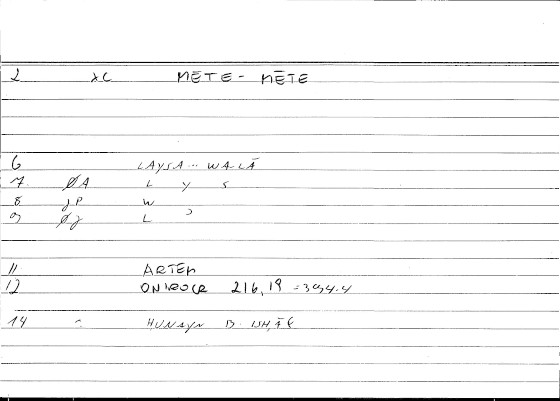 2 xc MĒTE - MĒTE
6 LAYSA... WALĀ
7 ØA L y s
8 JP W
9 ØJ L ʾ
11 ARTEM
12 ONIROCR 216,19 = 394.4
14 HUNAYN B. ISḤĀQ